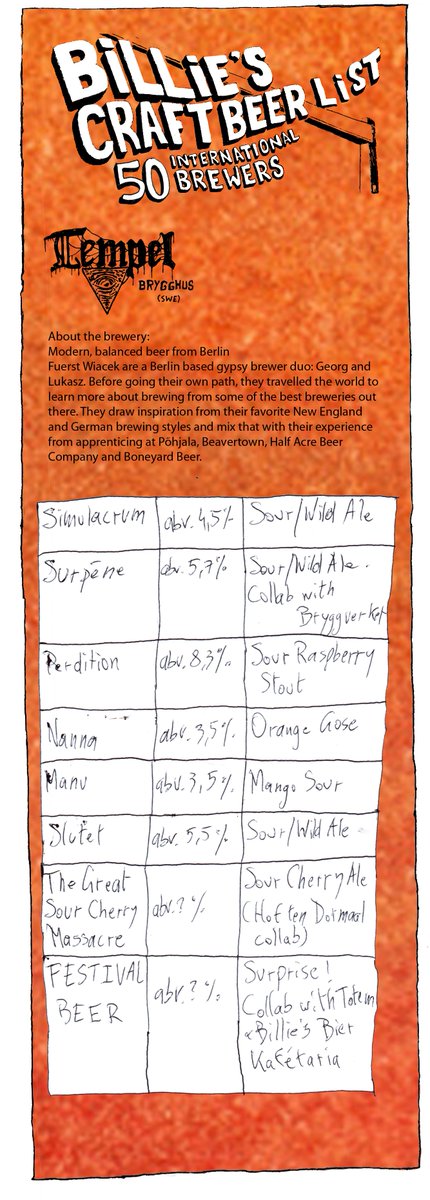 BILLIE'S
CRAFT BEER LIST
50 INTERNATIONAL
BREWERS
Tempel
BRYGGHUS
(SWE)
About the brewery:
Modern, balanced beer from Berlin
Fuerst Wiacek are a Berlin based gypsy brewer duo: Georg and
Lukasz. Before going their own path, they travelled the world to
learn more about brewing from some of the best breweries out
there. They draw inspiration from their favorite New England
and German brewing styles and mix that with their experience
from apprenticing at Pöhjala, Beavertown, Half Acre Beer
Company and Boneyard Beer.
Simulacrum abv. 4,5% Sour/Wild Ale
Surpëne abv. 5,7% Sour/Wild Ale.
Collab with
Bryggverket
Perdition abv. 8,3% Sour Raspberry
Stout
Nanna abv. 3,5% Orange Gose
Manu abv. 3,5% Mango Sour
Slutet abv. 5,5% Sour/Wild Ale
The Great
Sour Cherry
Massacre
abv. ? %
Sour Cherry Ale
(Hof ten Dormaal
collab)
FESTIVAL
BEER
abv. ? %
Surprise!
Collab with Totem
& Billie's Bier
Kafétaria